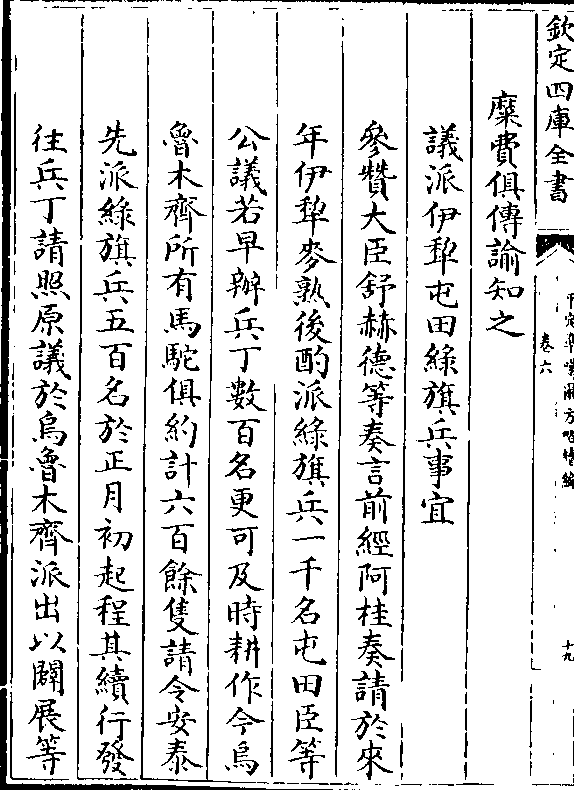 欽定四庫全書
平定準噶爾方略續編
卷六
十九
糜費俱傳諭知之
議派伊犂屯田綠旗兵事宜
參贊大臣舒赫德等奏言前經阿桂奏請於來
年伊犂麥熟後酌派綠旗兵一千名屯田臣等
公議若早辦兵丁數百名更可及時耕作今烏
魯木齊所有馬駝俱約計六百餘隻請令安泰
先派綠旗兵五百名於正月初起程其續行發
往兵丁請照原議於烏魯木齊派出以闢展等